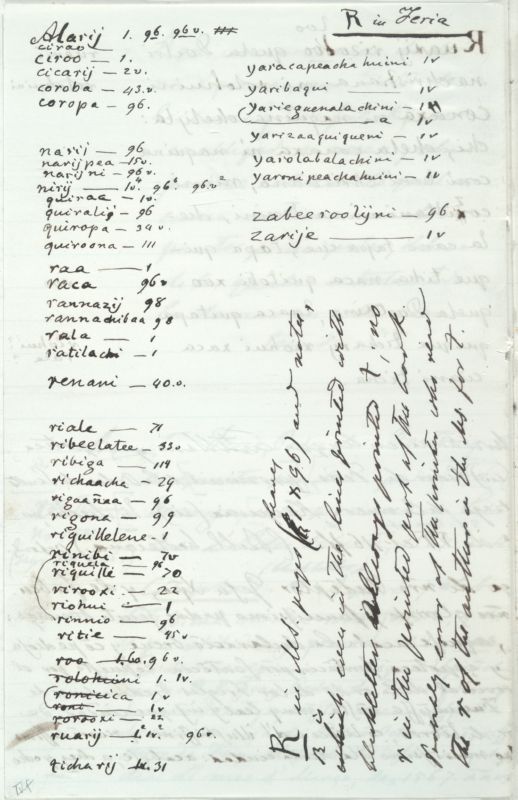 R in Feria
Alarij 1. 96. 96v.
cirao —
ciroo — 1.
cicarij — 2v.
coroba — 43.v.
coropa — 96.
narij — 96
narijpea — 15v.
narijni — 96v.
nirij — 1v. 96 96v.
quirae — 1v.
quiralij — 96
quiropa — 34v.
quiroona — 111
raa — 1
raca 96v
rannazij 98
rannachibaa 98
rala — 1
ratilachi — 1
renani — 40.v.
riale — 71
ribeelatee — 33v
ribiga — 114
richaacha — 29
rigaañaa — 96
rigona — 99
riguillelene — 1
rinibi — 7v
riquela — 96
riquille — 70
virooxi — 22
riohui — 1
rinnio — 96
ritie — 45v
roo — 1. 60. 96v.
rolohuini 1. 1v.
ronicica 1v
roni — 1v
rorooxi — 22
ruarij — 1v. 96v.
ticharij — 31
yaracapeacha huini 1v
yaribaqui — 1v
yarieguenalachini — 1v
— a — 1v
yarizaaquiqueni — 1v
yarolabalachini — 1v
yaronipeachahuini — 1v
zabeeroolijni — 96
zarije — 1v
R in MS. pages (1 & 96) and notes,
heavy
R is
which even in the lines printed with
blackletter
r in the printed part of the book.
only error of the printer who read
the r of the authors in the MS for t.